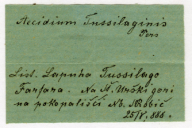 Aecidium Tussilaginis
Pers
List. Lapuha Tussilago
Farfara. Na Š. Urški gori
na pokopališči Ab. Robič
25/V. 866.